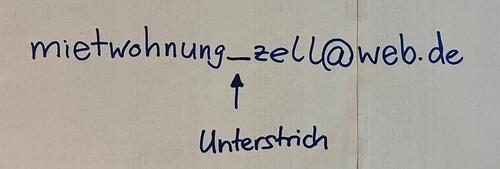 mietwohnung_zell@web.de
Unterstrich